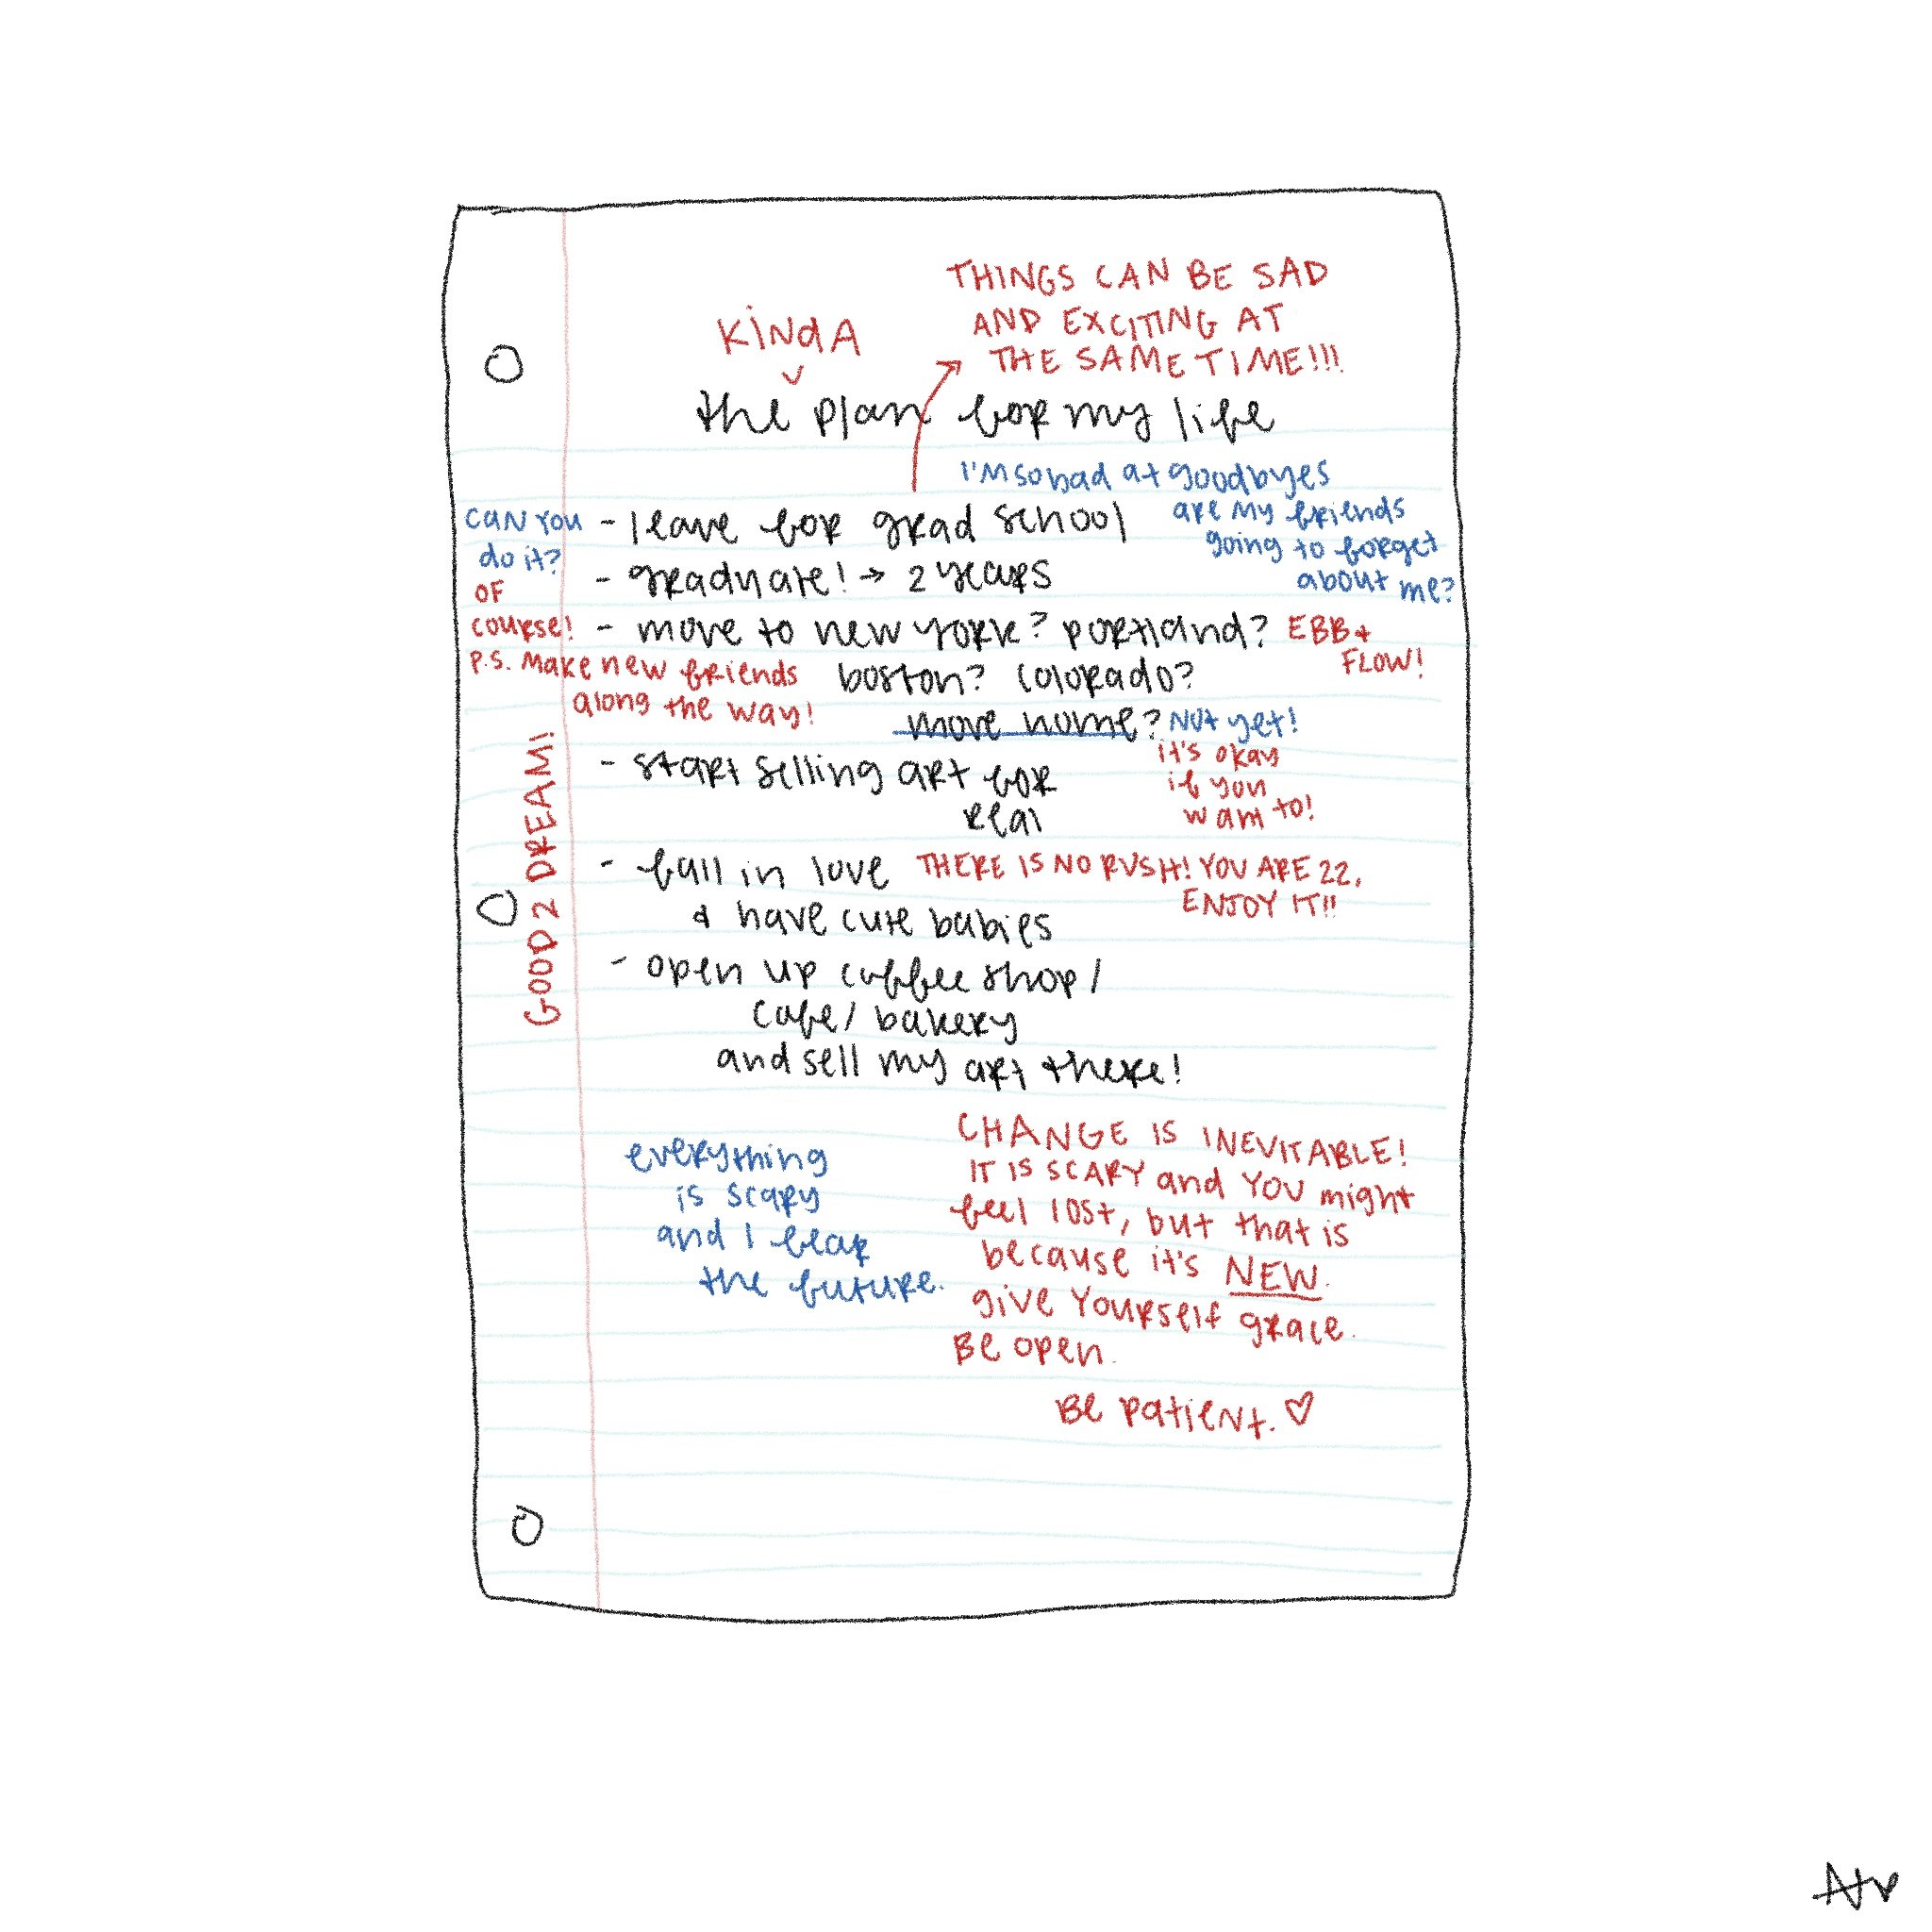 THINGS CAN BE SAD
AND EXCITING AT
THE SAME TIME!!!
KINdA
the plan for my life
I'M so bad at goodbyes
are my friends
going to forget
about me?
CAN YOU
do it?
OF
course!
P.S. Make new friends
along the way!
- leave for grad school
- graduate! → 2 years
- move to new york? portland?
boston? colorado?
move home?
EBB +
FLOW!
Not yet!
it's okay
if you
want to!
- start selling art for
real
- fall in love
& have cute babies
THERE IS NO RUSH! YOU ARE 22,
ENJOY IT!!
- open up coffee shop/
cafe/ bakery
and sell my art there!
GOOD 2 DREAM!
everything
is scary
and I fear
the future.
CHANGE IS INEVITABLE!
IT IS SCARY and YOU might
feel lost, but that is
because it's NEW.
give Yourself grace.
Be open.
Be patient. ♡